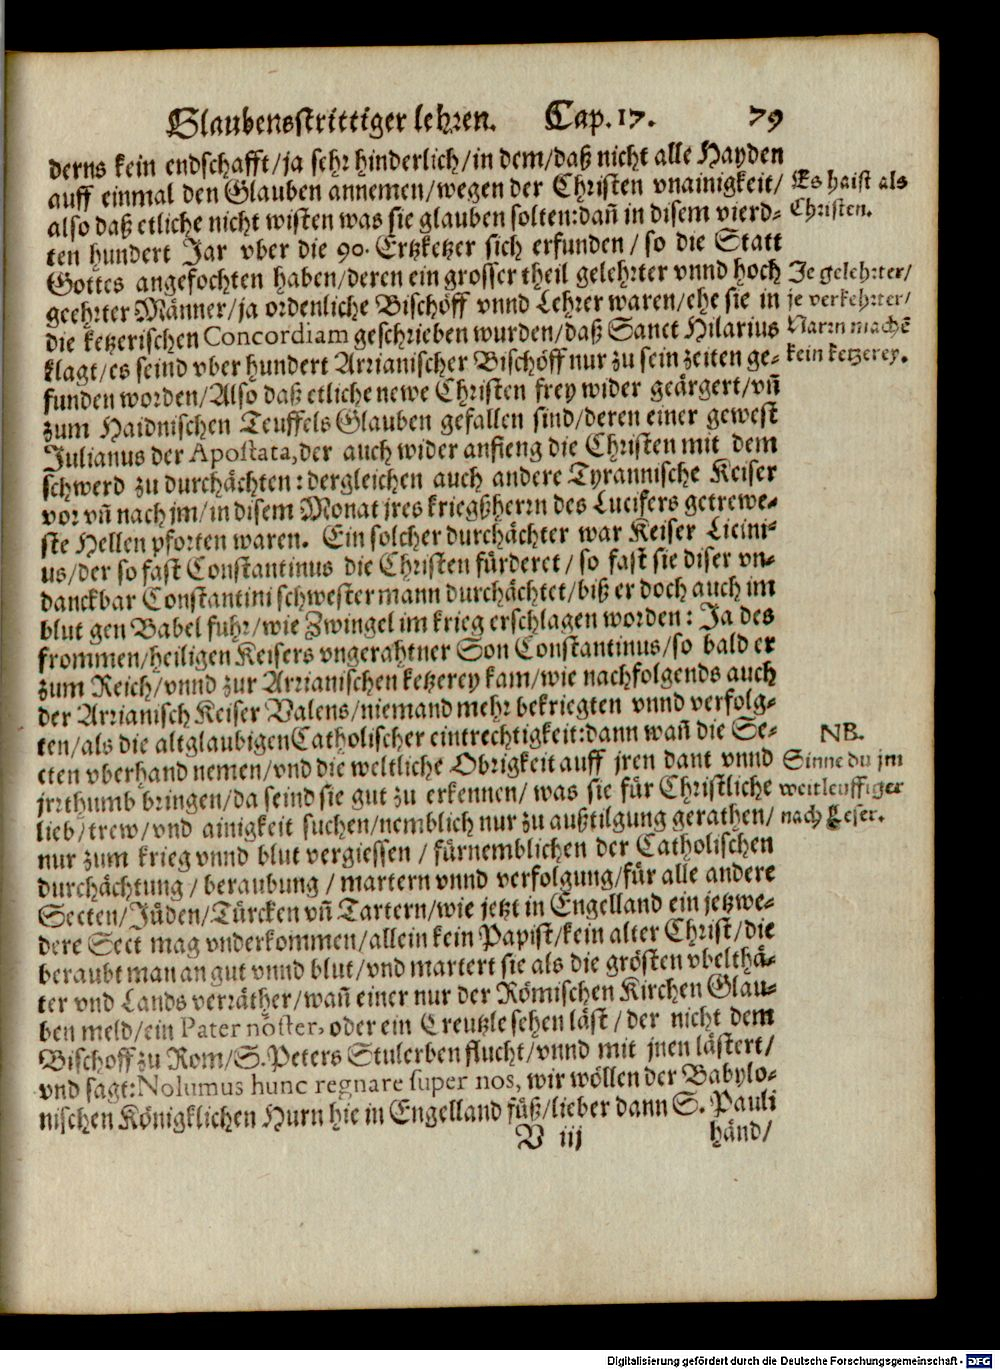 Glaubensstrittiger lehren. Cap. 17. 79
derns kein endschafft/ja sehr hinderlich/in dem/daß nicht alle Hayden
auff einmal den Glauben annemen/wegen der Christen vnainigkeit/
Es haist als
also daß etliche nicht wisten was sie glauben solten:dañ in disem vierd-
Christen.
ten hundert Jar vber die 90. Ertzketzer sich erfunden/so die Statt
Gottes angefochten haben/deren ein grosser theil gelehrter vnnd hoch
Je gelehrter/
geehrter Männer/ja ordenliche Bischöff vnnd Lehrer waren/ehe sie in
je verkehrter/
die ketzerischen Concordiam geschrieben wurden/daß Sanct Hilarius
Narrn machẽ
klagt/es seind vber hundert Arrianischer Bischöff nur zu sein zeiten ge-
kein ketzerey.
funden worden/Also daß etliche newe Christen frey wider geärgert/vñ
zum Haidnischen Teuffels Glauben gefallen sind/deren einer gewest
Julianus der Apostata,der auch wider anfieng die Christen mit dem
schwerd zu durchächten:dergleichen auch andere Tyrannische Keiser
vor vñ nach jm/in disem Monat jres kriegßherrn des Lucifers getrewe-
ste Hellen pforten waren. Ein solcher durchächter war Keiser Licini-
us/der so fast Constantinus die Christen fürderet/so fast sie diser vn-
danckbar Constantini schwester mann durchächtet/biß er doch auch im
blut gen Babel fuhr/wie Zwingel im krieg erschlagen worden: Ja des
frommen/heiligen Keisers vngerahtner Son Constantinus/so bald er
zum Reich/vnnd zur Arrianischen ketzerey kam/wie nachfolgends auch
der Arrianisch Keiser Valens/niemand mehr bekriegten vnnd verfolg-
ten/als die altglaubigen Catholischer eintrechtigkeit:dann wañ die Se-
NB.
cten vberhand nemen/vnd die weltliche Obrigkeit auff jren dant vnnd
Sinne du jm
jrrthumb bringen/da seind sie gut zu erkennen/was sie für Christliche
weitleuffiger
lieb/trew/vnd ainigkeit suchen/nemblich nur zu außtilgung gerathen/
nach Leser.
nur zum krieg vnnd blut vergiessen/fürnemblichen der Catholischen
durchächtung/beraubung/martern vnnd verfolgung/für alle andere
Secten/Jüden/Türcken vñ Tartern/wie jetzt in Engelland ein jetzwe-
dere Sect mag vnderkommen/allein kein Papist/kein alter Christ/die
beraubt man an gut vnnd blut/vnd martert sie als die grösten vbelthä-
ter vnd Lands verräther/wañ einer nur der Römischen Kirchen Glau-
ben meld/ein Pater nôster, oder ein Creutzle sehen läst/der nicht dem
Bischoff zu Rom/S. Peters Stulerben flucht/vnnd mit jnen lästert/
vnd sagt:Nolumus hunc regnare super nos, wir wöllen der Babylo-
nischen Königklichen Hurn hie in Engelland füß/lieber dann S. Pauli
V iij händ/
Digitalisierung gefördert durch die Deutsche Forschungsgemeinschaft - DFG